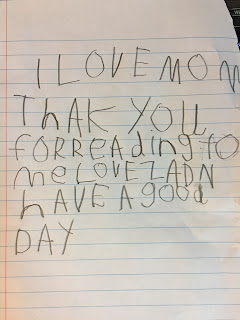 I LOVE MOM
THAK YOU
forreAding to
me LOVE ZADN
hAVE A good
DAY